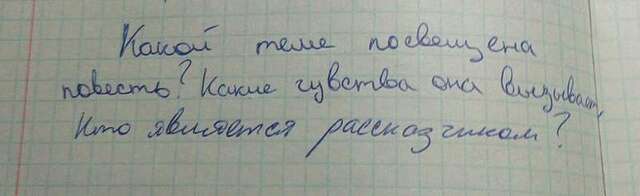 Какой теме посвещена
повесть? Какие чувства она вызывает,
Кто является рассказчиком?